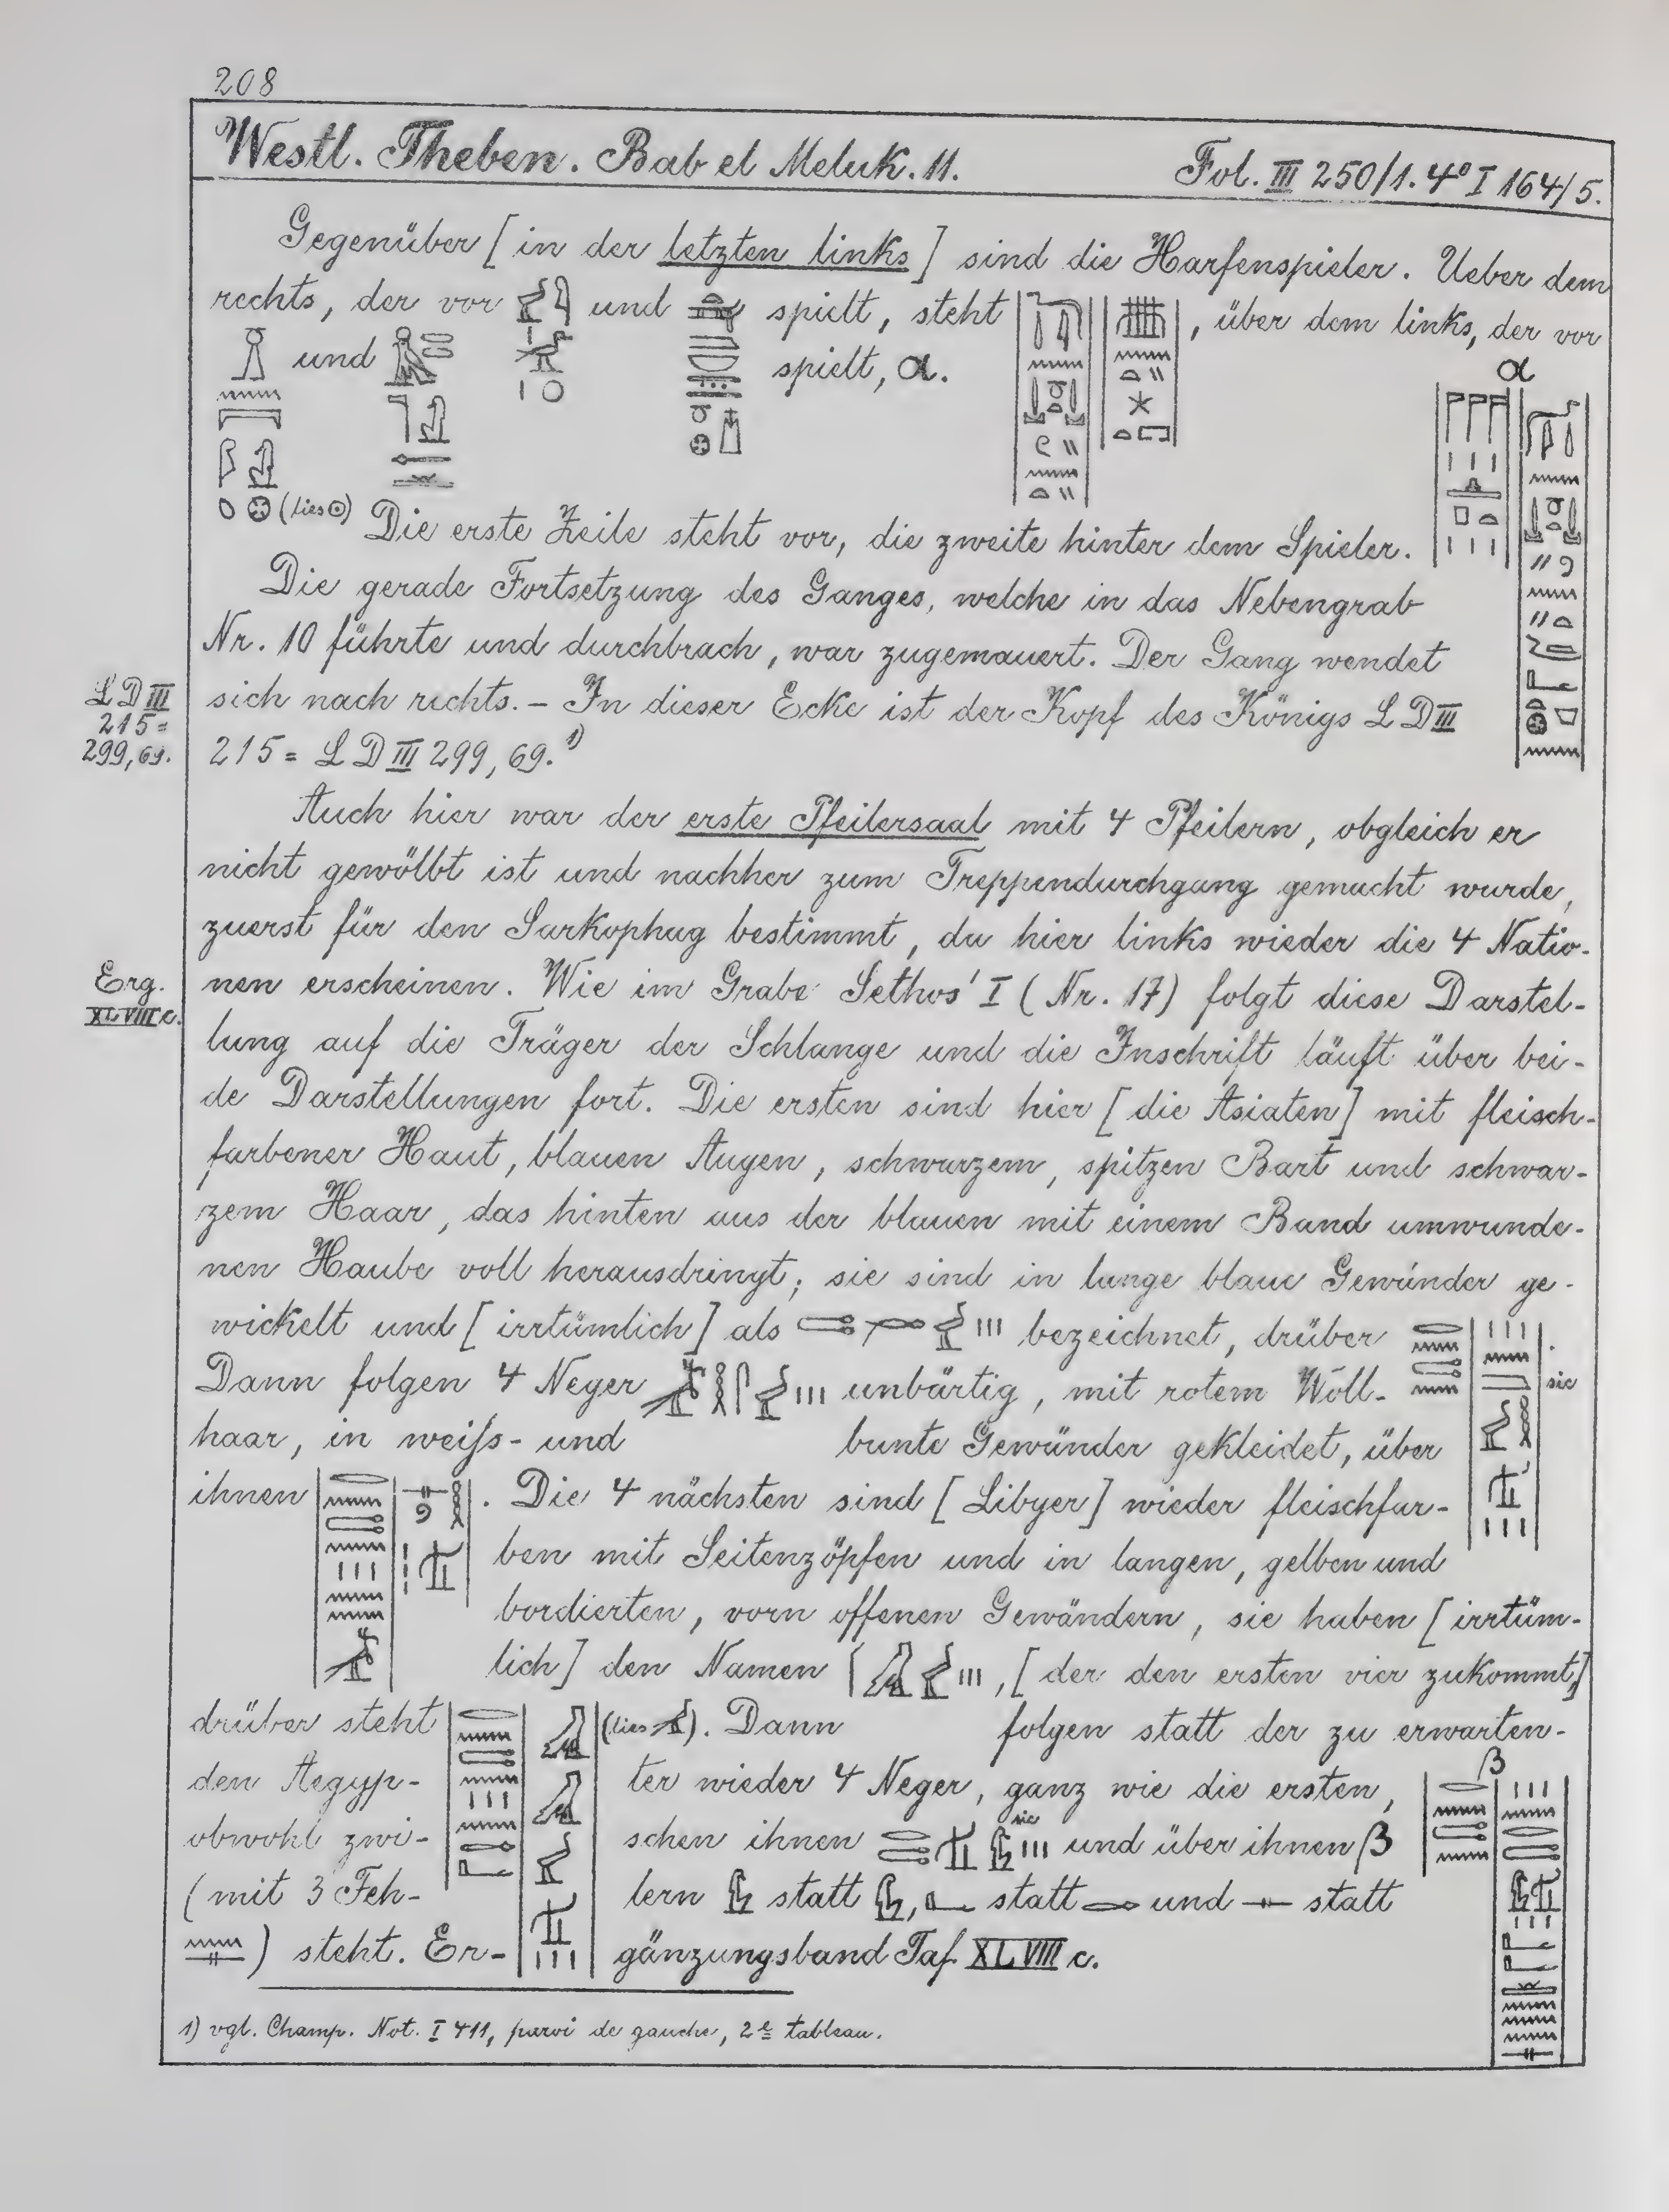 208
Westl. Theben. Bab el Meluk. 11. Fol. III 250/1. 4° I 164/5.
Gegenüber [in der letzten links] sind die Harfenspieler. Ueber dem
rechts, der vor und spielt, steht , über dem links, der vor
und spielt, α.
α
(lies ) Die erste Zeile steht vor, die zweite hinter dem Spieler.
Die gerade Fortsetzung des Ganges, welche in das Nebengrab
Nr. 10 führte und durchbrach, war zugemauert. Der Gang wendet
sich nach rechts. – In dieser Ecke ist der Kopf des Königs L D III
215 = L D III 299, 69. 1)
L D III
215 =
299, 69.
Auch hier war der erste Pfeilersaal mit 4 Pfeilern, obgleich er
nicht gewölbt ist und nachher zum Treppendurchgang gemacht wurde,
zuerst für den Sarkophag bestimmt, da hier links wieder die 4 Natio-
nen erscheinen. Wie im Grabe Sethos' I (Nr. 17) folgt diese Darstel-
Erg.
XLVIII c.
lung auf die Träger der Schlange und die Inschrift läuft über bei-
de Darstellungen fort. Die ersten sind hier [die Asiaten] mit fleisch-
farbener Haut, blauen Augen, schwarzem, spitzen Bart und schwar-
zem Haar, das hinten aus der blauen mit einem Band umwunde-
nen Haube voll herausdringt; sie sind in lange blaue Gewänder ge-
wickelt und [irrtümlich] als bezeichnet, drüber .
Dann folgen 4 Neger unbärtig, mit rotem Woll- sic
haar, in weiſs- und bunte Gewänder gekleidet, über
ihnen . Die 4 nächsten sind [Libyer] wieder fleischfar-
ben mit Seitenzöpfen und in langen, gelben und
bordierten, vorn offenen Gewändern, sie haben [irrtüm-
lich] den Namen , [der den ersten vier zukommt,]
drüber steht (lies ). Dann folgen statt der zu erwarten-
den Aegyp- ter wieder 4 Neger, ganz wie die ersten, β
obwohl zwi- schen ihnen sic und über ihnen β
(mit 3 Feh- lern statt , statt und statt
) steht. Er- gänzungsband Taf. XLVIII c.
1) vgl. Champ. Not. I 411, paroi de gauche, 2e tableau.